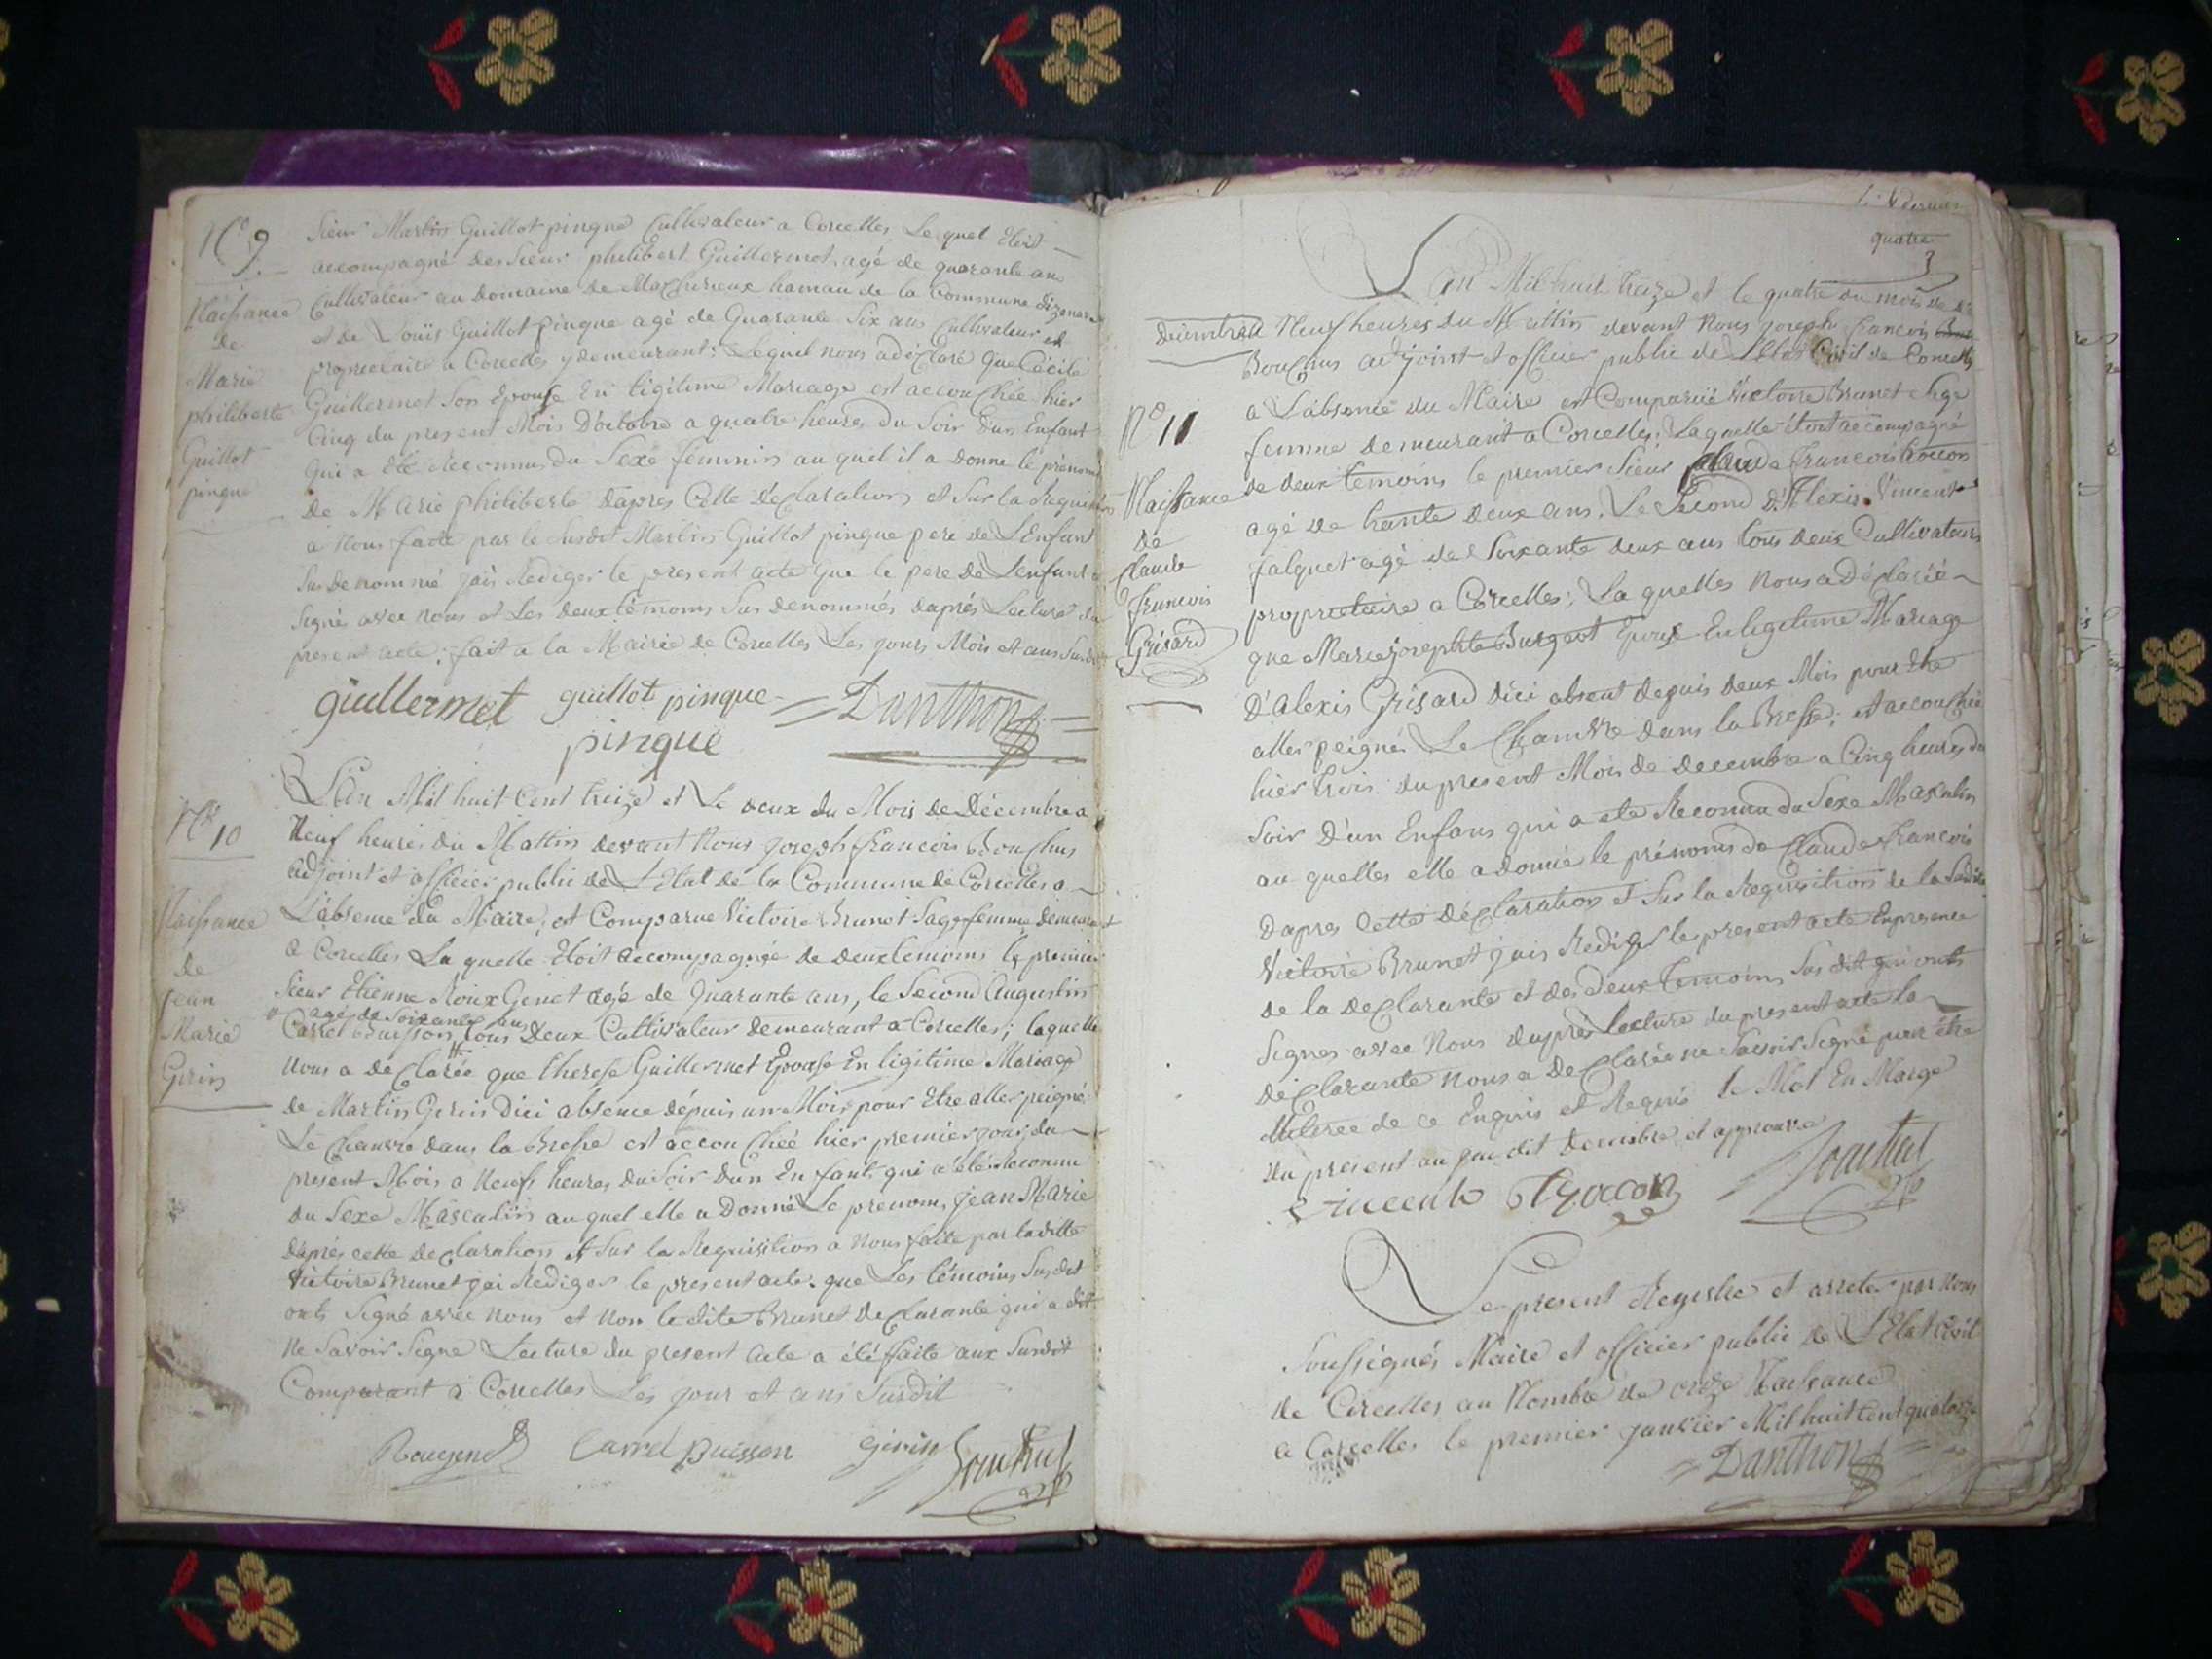 N.° 9
Naissance
de
Marie
philiberte
Guillot
pingue
Sieur Martin Guillot pingue Cultivateur a Corcelles Lequel Etoit
accompagné des Sieur philibert Guillermet agé de quarante ans
Cultivateur au Domaine de hamau de la Commune
et de Louis Guillot pingue agé de Quarante Six ans Cultivateur et
proprietaire a Corcelles y demeurant: Lequel nous a déclaré que Cécile
Guillermet Son Epouse En légitime Mariage est accouchée hier
Cinq du present Mois D'octobre a quatre heures du Soir Dun Enfant
qui a Eté Reconnu du Sexe féminin au quel il a Donné le prénoms
De Marie philiberte Dapres Cette Déclaration et Sur la Requisition
a Nous faite par le Susdit Martin Guillot pingue pere de L'Enfant
Sus denommé jais Rediger le present acte que le pere de Lenfant a
Signés avec nous et Les deux témoins Sus denommés daprés Lecture du
present acte; fait a la Mairie de Corcelles Les jours Mois et ans Susdit
guillermet guillot pingue Danthon
pingue
N.° 10
Naissance
de
Jean
Marie
Girin
L'An Mil huit Cent treize et Le deux du Mois de Décembre a
Neuf heures du Mattin devant Nous joseph françois Bouchus
adjoint et officier public de L'Etat de la Commune de Corcelles a
L'absence du Maire; est Comparue Victoire Brunet Sage femme demeurant
a Corcelles La quelle Etoit accompagnée de deux temoins le premier
Sieur Etienne Roux Genet agé de quarante ans, le Second Augustin
agé de Soixante ans
Carrel Buisson tous Deux Cultivateur demeurant a Corcelles; laquelle
Nous a déclarée que therese Guillermet Epouse En légitime Mariage
de Martin Girin Dici absence dépuis un Mois pour Etre aller peigné
Le Chanvre dans la Bresse est accouchée hier premier jour du
present Mois a Neufs heures du Soir Dun Enfant qui a été Reconnu
du Sexe Masculin auquel elle a Donné Le prenom, jean Marie
dapres cette declaration et Sur la Requisition a Nous faite par laditte
Victoire Brunet jai Rediger le present acte. que Les témoins Susdit
onts Signé avec nous et Non ledite Brunet declarante qui a dit
Ne Savoir Signe Lecture du present Acte a été faite aux Susdit
Comparant a Corcelles Les jour et ans Susdit
Carrel Buisson girin Bouchus
quatre
L'an Mil huit treize et le quatre du mois de
décembre a Neuf heures Du Mattin devant Nous joseph françois
Bouchus adjoint et officier public de L'Etat Civil de Corcelles
a L'absence du Maire est Comparuë Victoire Brunet Sage
femme demeurant a Corcelles; Laquelle étoit accompagné
de deux temoins le premier Sieur Claude françois
agé de trante deux ans. Le Second D'Alexis Vincent
falquet agé de Soixante deux ans tous deux Cultivateurs
proprietaire a Corcelles; La quelles Nous a Déclarée
que Marie josephte Burgeot Epouse En legitime Mariage
D'alexis Grisard dici absent depuis deux Mois pour Etre
aller peigner Le Chanvre dans la Bresse; est accouchée
hier trois du present Mois de decembre a Cinq heures du
Soir D'un Enfans qui a ete Reconnu du Sexe Masculin
au quelles elle a donné le prénoms de Claude françois
Dapres Cette Déclaration et Sur la Requisition de la Sudite
Victoire Brunet jais Rediger le present acte En presence
de la Declarante et des deux temoins Sus dit qui onts
Signes avec Nous daprès lecture du present acte la
déclarante nous a Declarée ne Savoir Signé pour être
de ce Enquis et Requis le Mot En Marge
du present au qui dit Decembre, et approuvé
N.° 11
Naissance
de
Claude
françois
Grisard
Vincent Bouchus
Le present Registre et arreter par Nous
Soussignés Maire et officier public de L'Etat Civil
de Corcelles au Nombre de onze Naissance
a Corcelles le premier janvier Mil huit Cent quatorze
Danthon